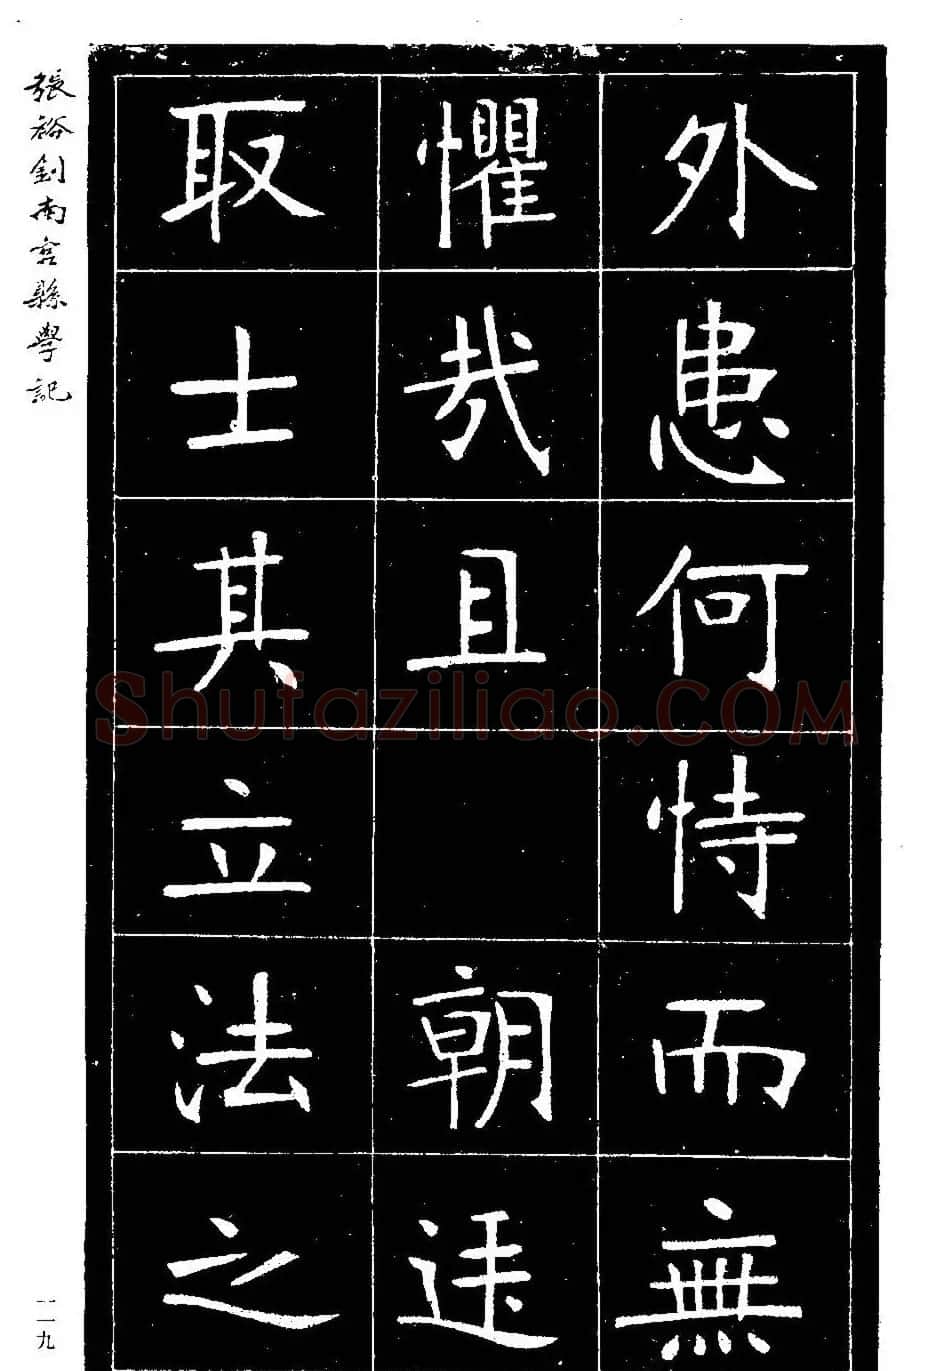 外患何恃而無
懼哉且 朝廷
取士其立法之
張裕釗南宮縣學記
一一九
Shufaziliao.COM